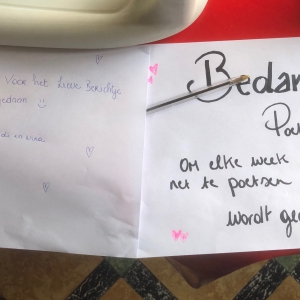 Voor het Lieve Berichtje
Bedan
Poe
Om elke week
net te poetsen
Wordt ge